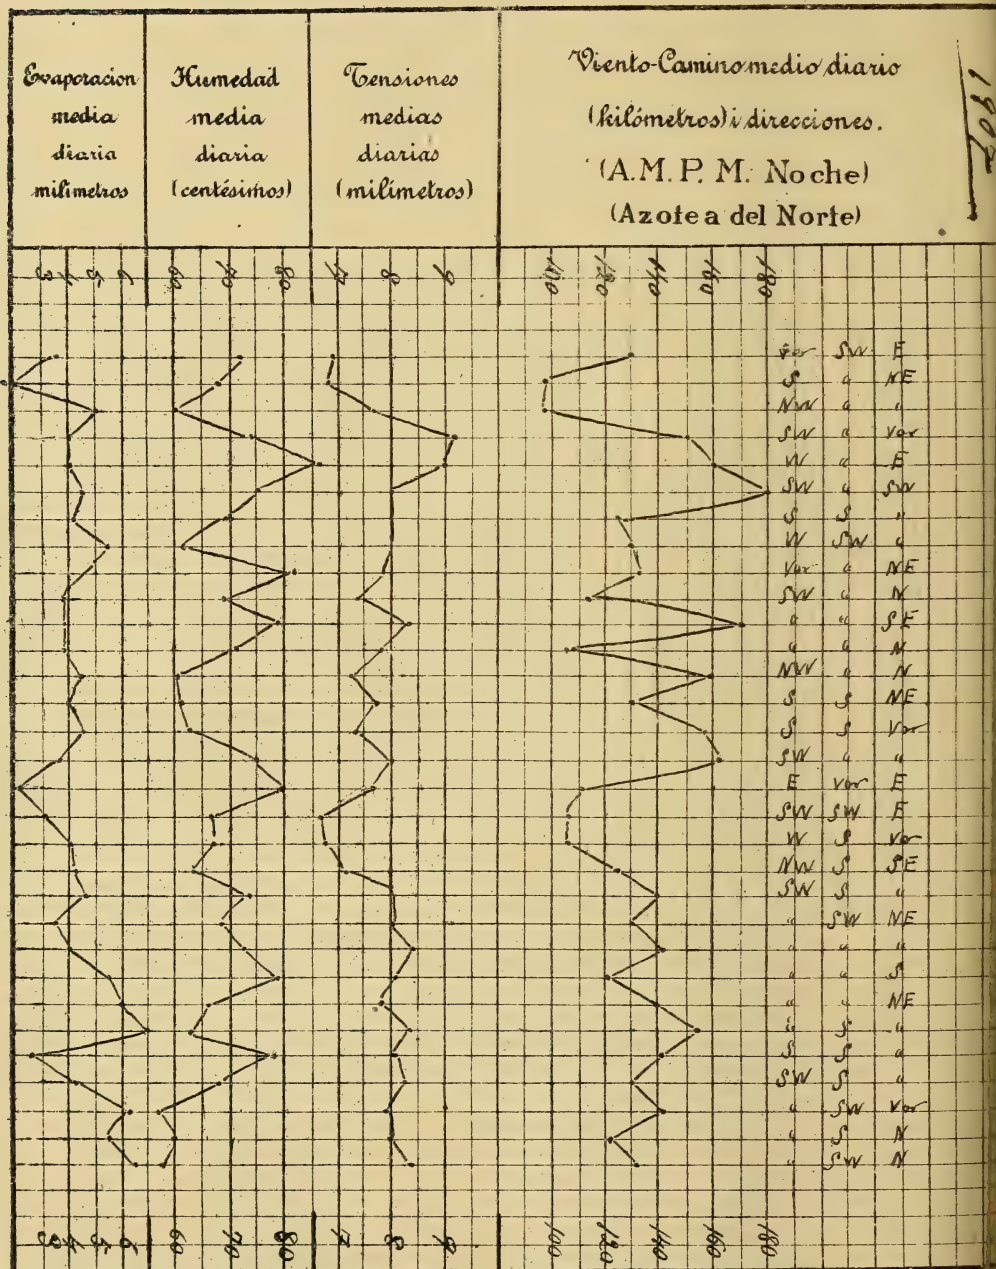 Evaporacion
media
diaria
milimetros
Humedad
media
diaria
(centésimos)
Tensiones
medias
diarias
(milímetros)
Viento-Camino medio diario
(kilómetros) i direcciones.
(A.M. P. M. Noche)
(Azotea del Norte)
3 4 5 6 60 70 80 7 8 9 100 120 140 160 180
Var SW E
S " NE
NW " "
SW " Var
W " E
SW " SW
S S "
W SW "
Var " NE
SW " N
" " SE
" " N
NW " N
S S NE
S S Var
SW " "
E Var E
SW SW E
W S Var
NW S SE
SW S "
" SW NE
" " "
" " S
" " NE
" S "
S S "
SW S "
" SW Var
" S N
" SW N
3 4 5 6 60 70 80 7 8 9 100 120 140 160 180